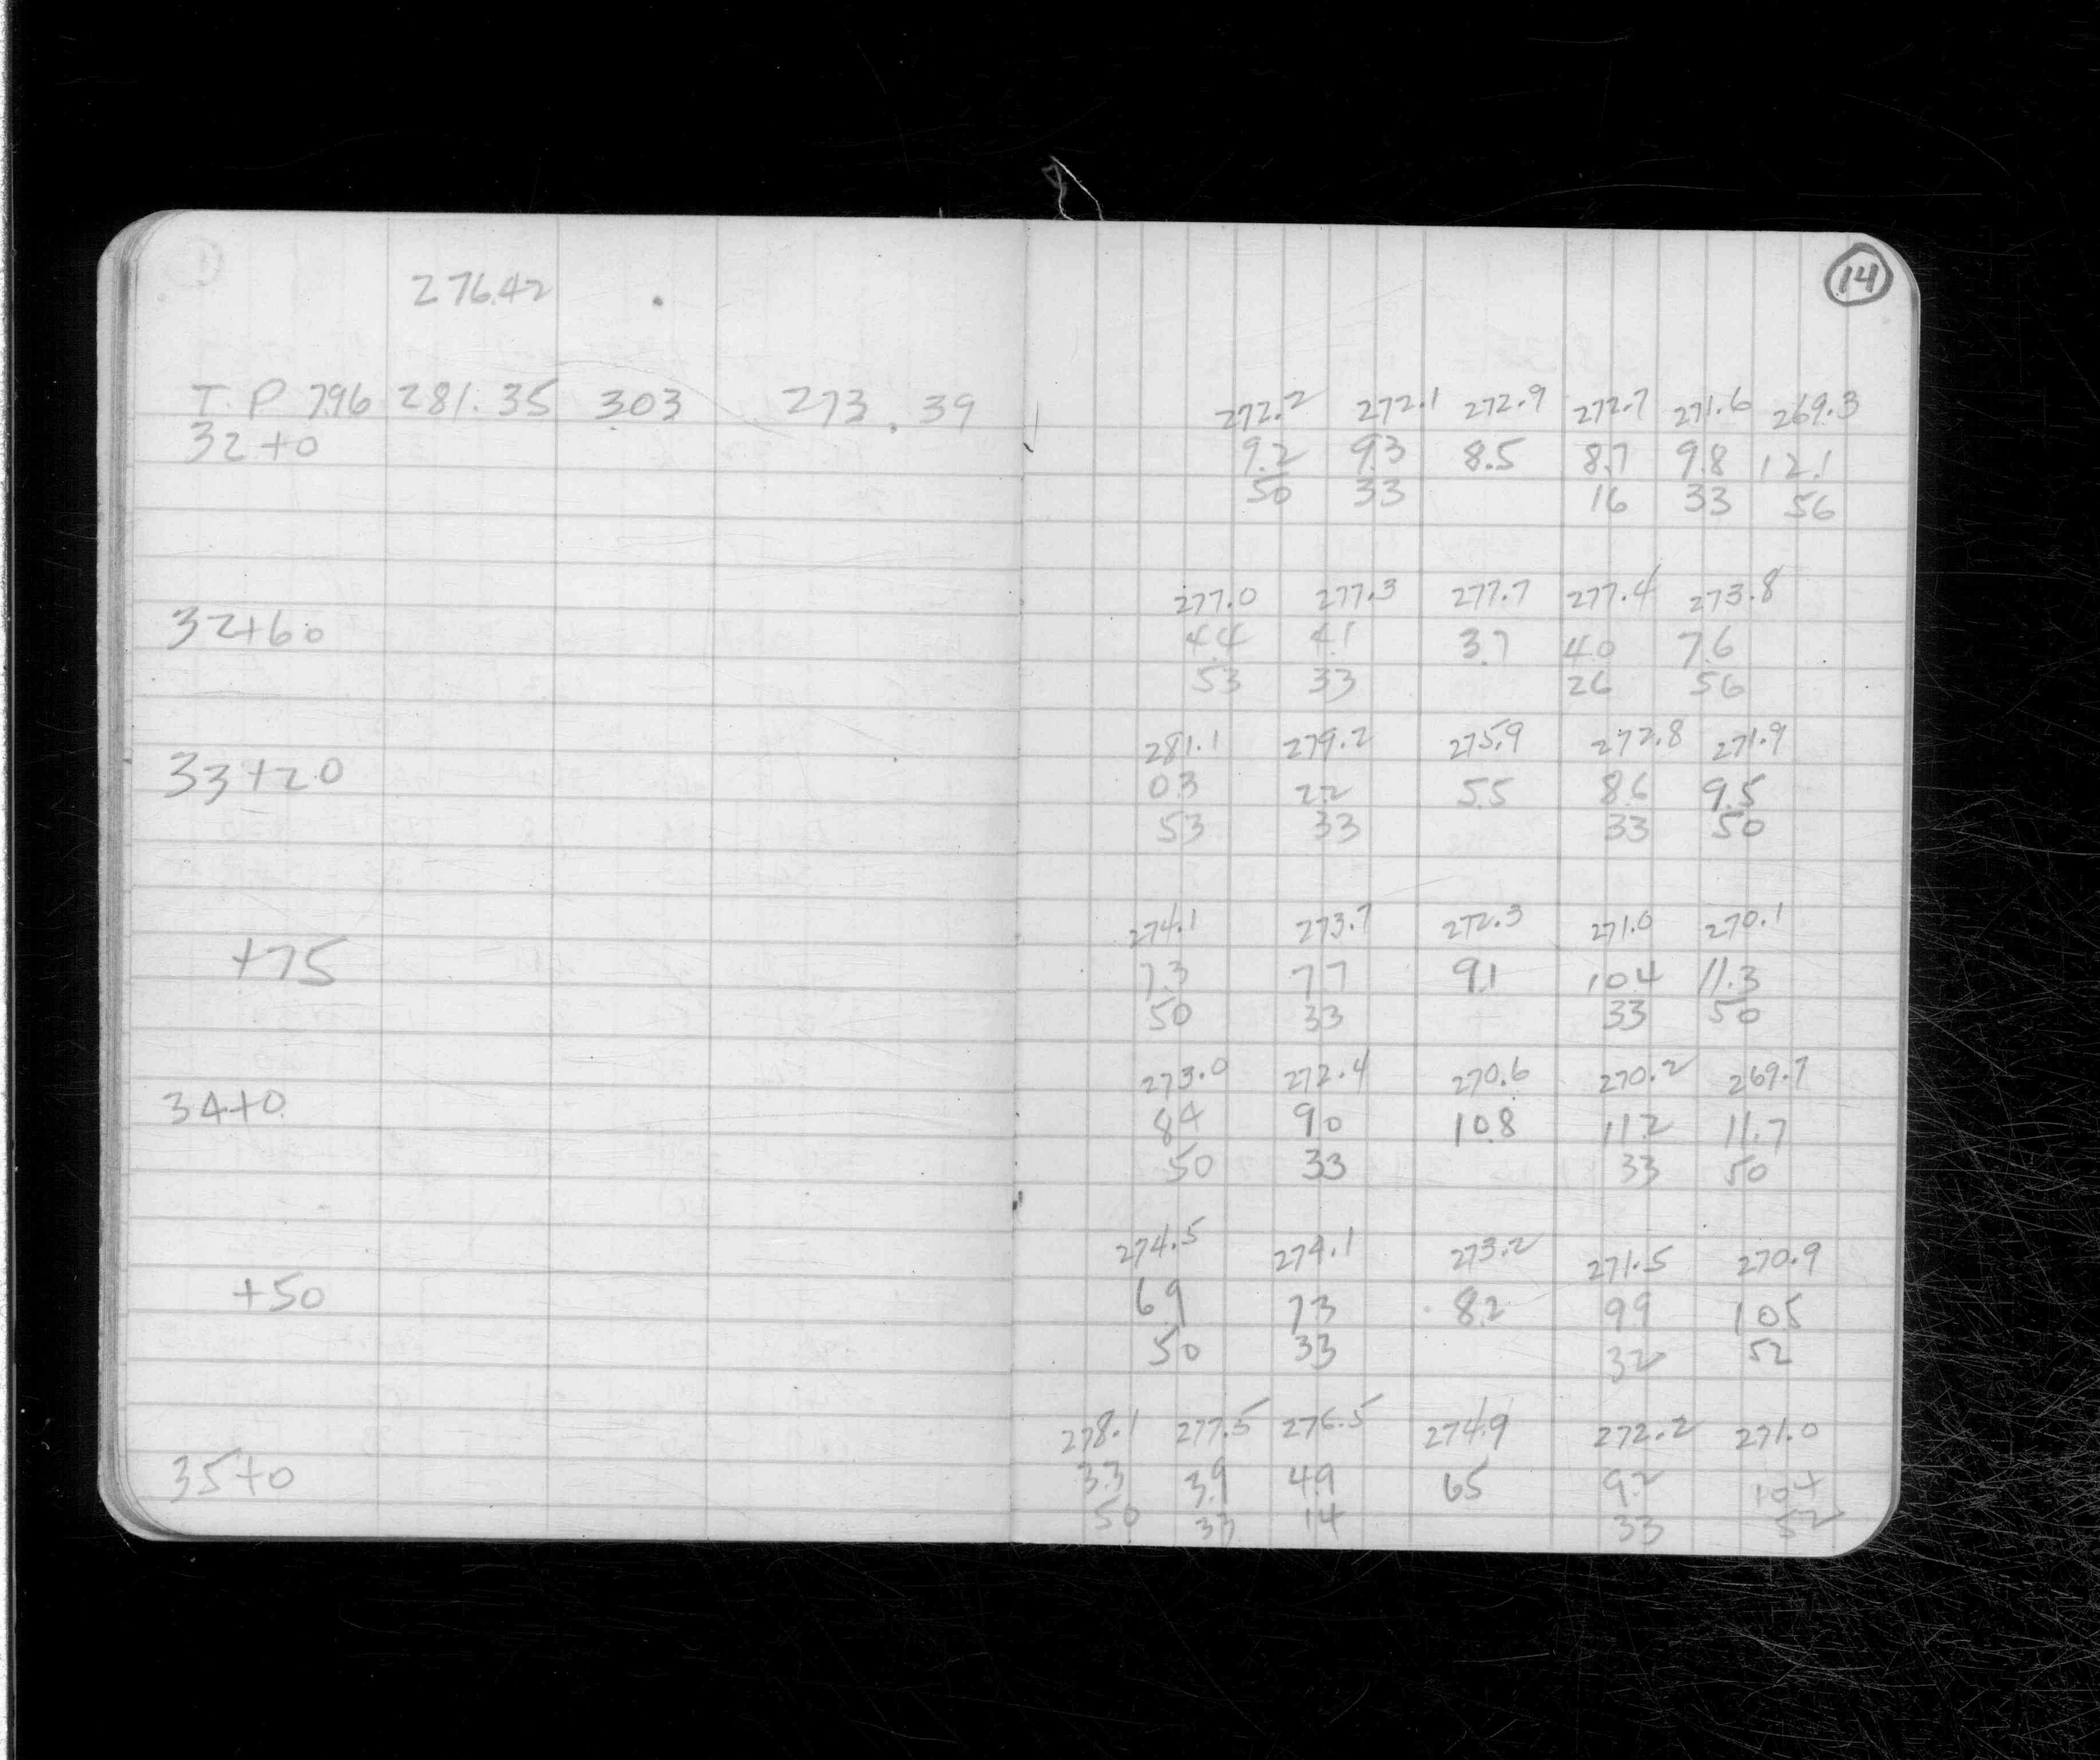 276.42
14
T.P 7.96 281.35 3.03 273.39
272.2 272.1 272.9 272.7 271.6 269.3
32+0
9.2 9.3 8.5 8.7 9.8 12.1
50 33 16 33 56
277.0 277.3 277.7 277.4 273.8
32+60
4.4 4.1 3.7 4.0 7.6
53 33 26 56
281.1 279.2 275.9 272.8 271.9
33+20
0.3 2.2 5.5 8.6 9.5
53 33 33 50
274.1 273.7 272.3 271.0 270.1
+75
7.3 7.7 9.1 10.4 11.3
50 33 33 50
273.0 272.4 270.6 270.2 269.7
34+0
8.4 9.0 10.8 11.2 11.7
50 33 33 50
274.5 274.1 273.2 271.5 270.9
+50
6.9 7.3 8.2 9.9 10.5
50 33 32 52
278.1 277.5 276.5 274.9 272.2 271.0
35+0
3.3 3.9 4.9 6.5 9.2 10.4
50 33 14 33 52